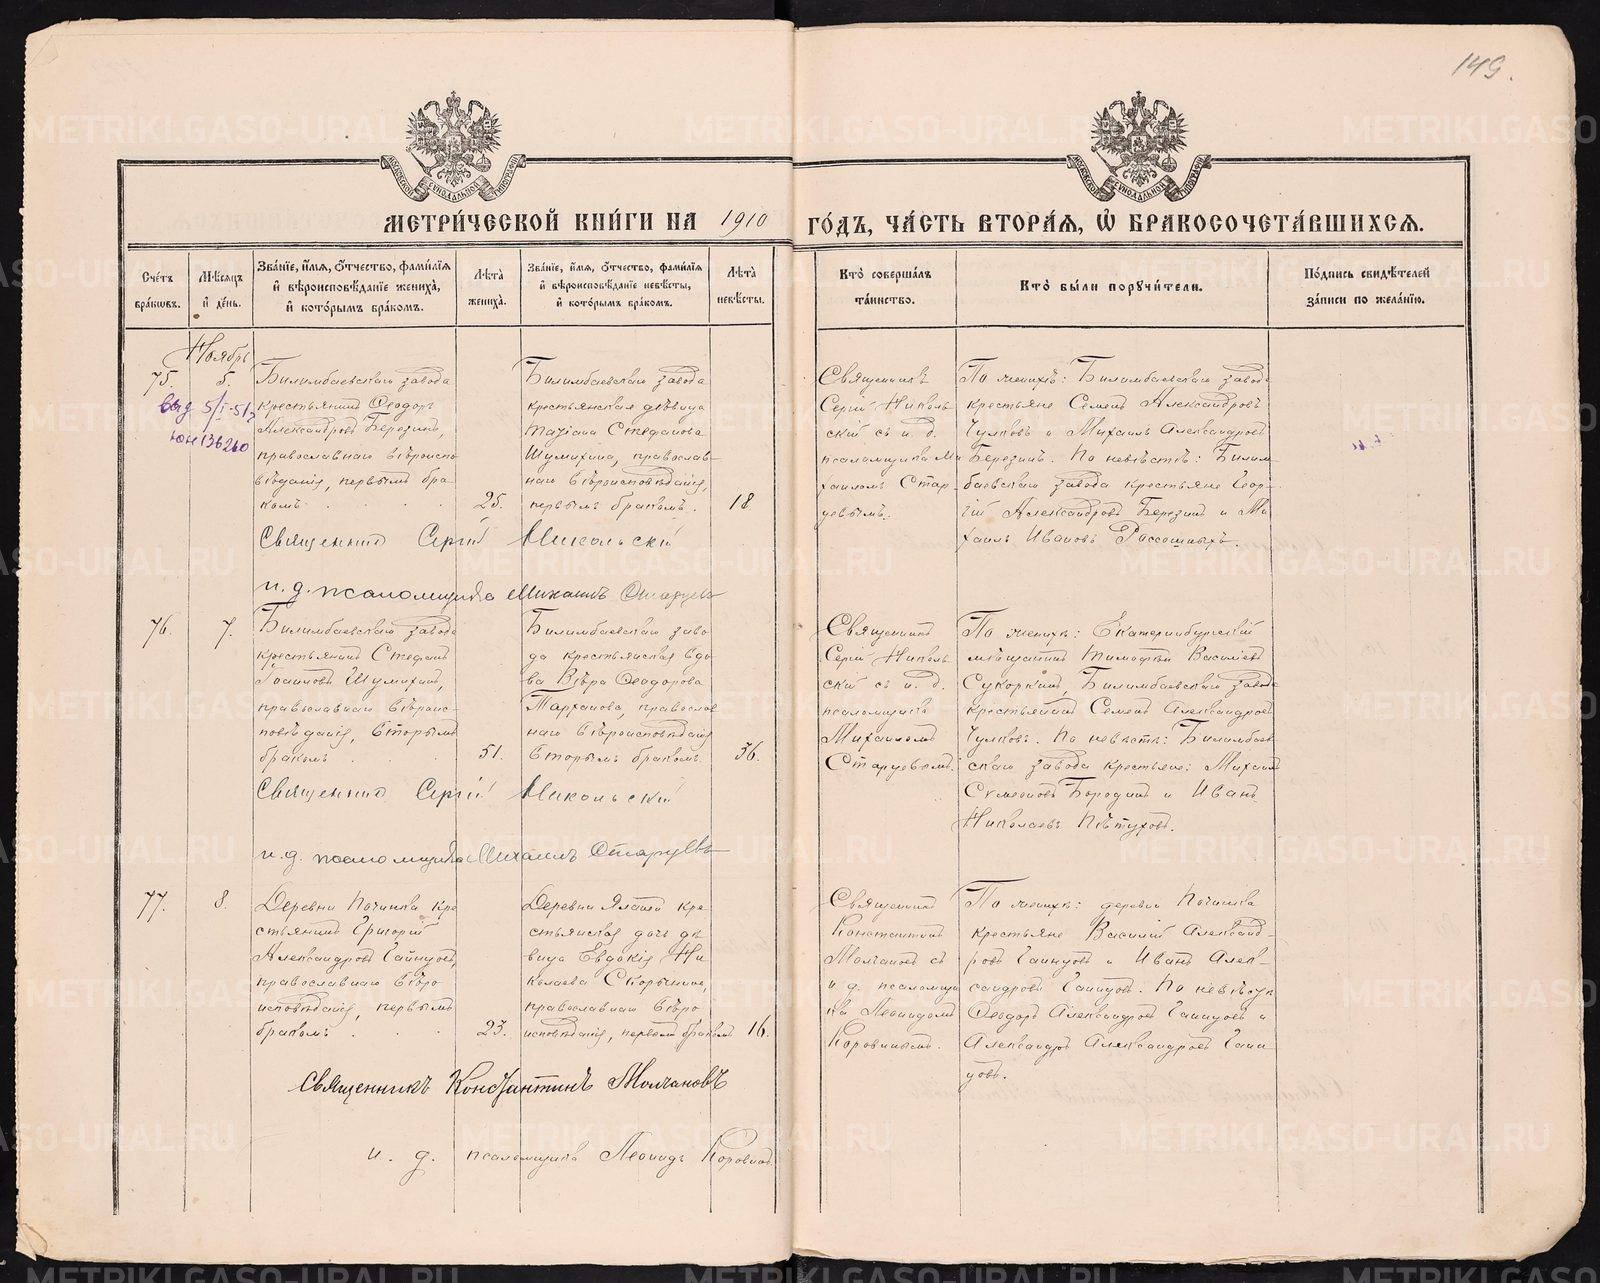 149.
МЕТРИЧЕСКОЙ КНИГИ НА 1910 ГОДЪ, ЧАСТЬ ВТОРАЯ, Ѡ БРАКОСОЧЕТАВШИХСЯ.
Счетъ браковъ.
Мѣсяцъ и день.
Званіе, имя, отчество, фамилія и вѣроисповѣданіе жениха, и которымъ бракомъ.
Лѣта жениха.
Званіе, имя, отчество, фамилія и вѣроисповѣданіе невѣсты, и которымъ бракомъ.
Лѣта невѣсты.
Кто совершалъ таинство.
Кто были поручители.
Подпись свидѣтелей записи по желанію.
Ноябрь
75.
5.
Билимбаевскаго завода
крестьянинъ Ѳеодоръ
Александровъ Березинъ,
православнаго вѣроиспо-
вѣданія, первымъ бра-
комъ
25.
Билимбаевскаго завода
крестьянская дѣвица
Татіана Стефанова
Шумихина, православ-
наго вѣроисповѣданія,
первымъ бракомъ.
18
Священникъ
Сергій Николь-
скій съ и. д.
псаломщика Ми-
хаиломъ Стар-
цевымъ.
По женихѣ: Билимбаевскаго завода
крестьяне Семенъ Александровъ
Чулковъ и Михаилъ Александровъ
Березинъ. По невѣстѣ: Билим-
баевскаго завода крестьяне Геор-
гій Александровъ Березинъ и Ми-
хаилъ Ивановъ Рассошныхъ.
Священникъ Сергій Никольскій
и. д. псаломщика Михаилъ Старцевъ
76.
7.
Билимбаевскаго завода
крестьянинъ Стефанъ
Іоанновъ Шумихинъ,
православнаго вѣроис-
повѣданія, вторымъ
бракомъ
51.
Билимбаевскаго заво-
да крестьянская вдо-
ва Вѣра Ѳеодорова
Тарханова, православ-
наго вѣроисповѣданія
вторымъ бракомъ.
36.
Священникъ
Сергій Николь-
скій съ и. д.
псаломщика
Михаиломъ
Старцевымъ.
По женихѣ: Екатеринбургскій
мѣщанинъ Тимофей Васильевъ
Сукоркинъ, Билимбаевскаго завода
крестьянинъ Семенъ Александровъ
Чулковъ. По невѣстѣ: Билимбаев-
скаго завода крестьяне: Михаилъ
Симеоновъ Бородинъ и Иванъ
Николаевъ Пѣтуховъ.
Священникъ Сергій Никольскій
и. д. псаломщика Михаилъ Старцевъ
77.
8.
Деревни Починка кре-
стьянинъ Григорій
Александровъ
православнаго вѣро-
исповѣданія, первымъ
бракомъ
23.
Деревни кре-
стьянская дочь дѣ-
вица Евдокія Ни-
колаева Скорынина,
православнаго вѣро-
исповѣданія, первымъ бракомъ
16.
Священникъ
Константинъ
Молчановъ съ
и. д. псаломщи-
ка Леонидомъ
Коровинымъ.
По женихѣ: деревни Починка
крестьяне Василій Александ-
ровъ и Иванъ Алек-
сандровъ По невѣстѣ
Ѳеодоръ Александровъ и
Александръ Александровъ
Священникъ Константинъ Молчановъ
и. д. псаломщика Леонидъ Коровинъ
METRIKI.GASO-URAL.RU